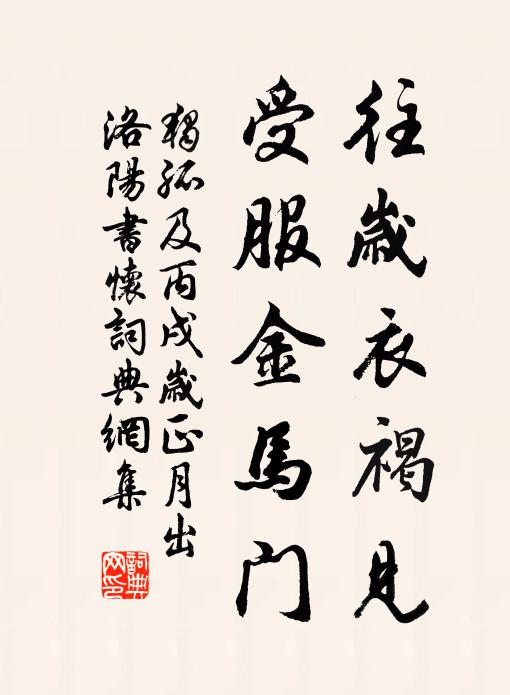 往歲衣褐見
受服金馬门
獨孤及丙戌歲正月出
洛陽書懷詞典網集
詞典网印